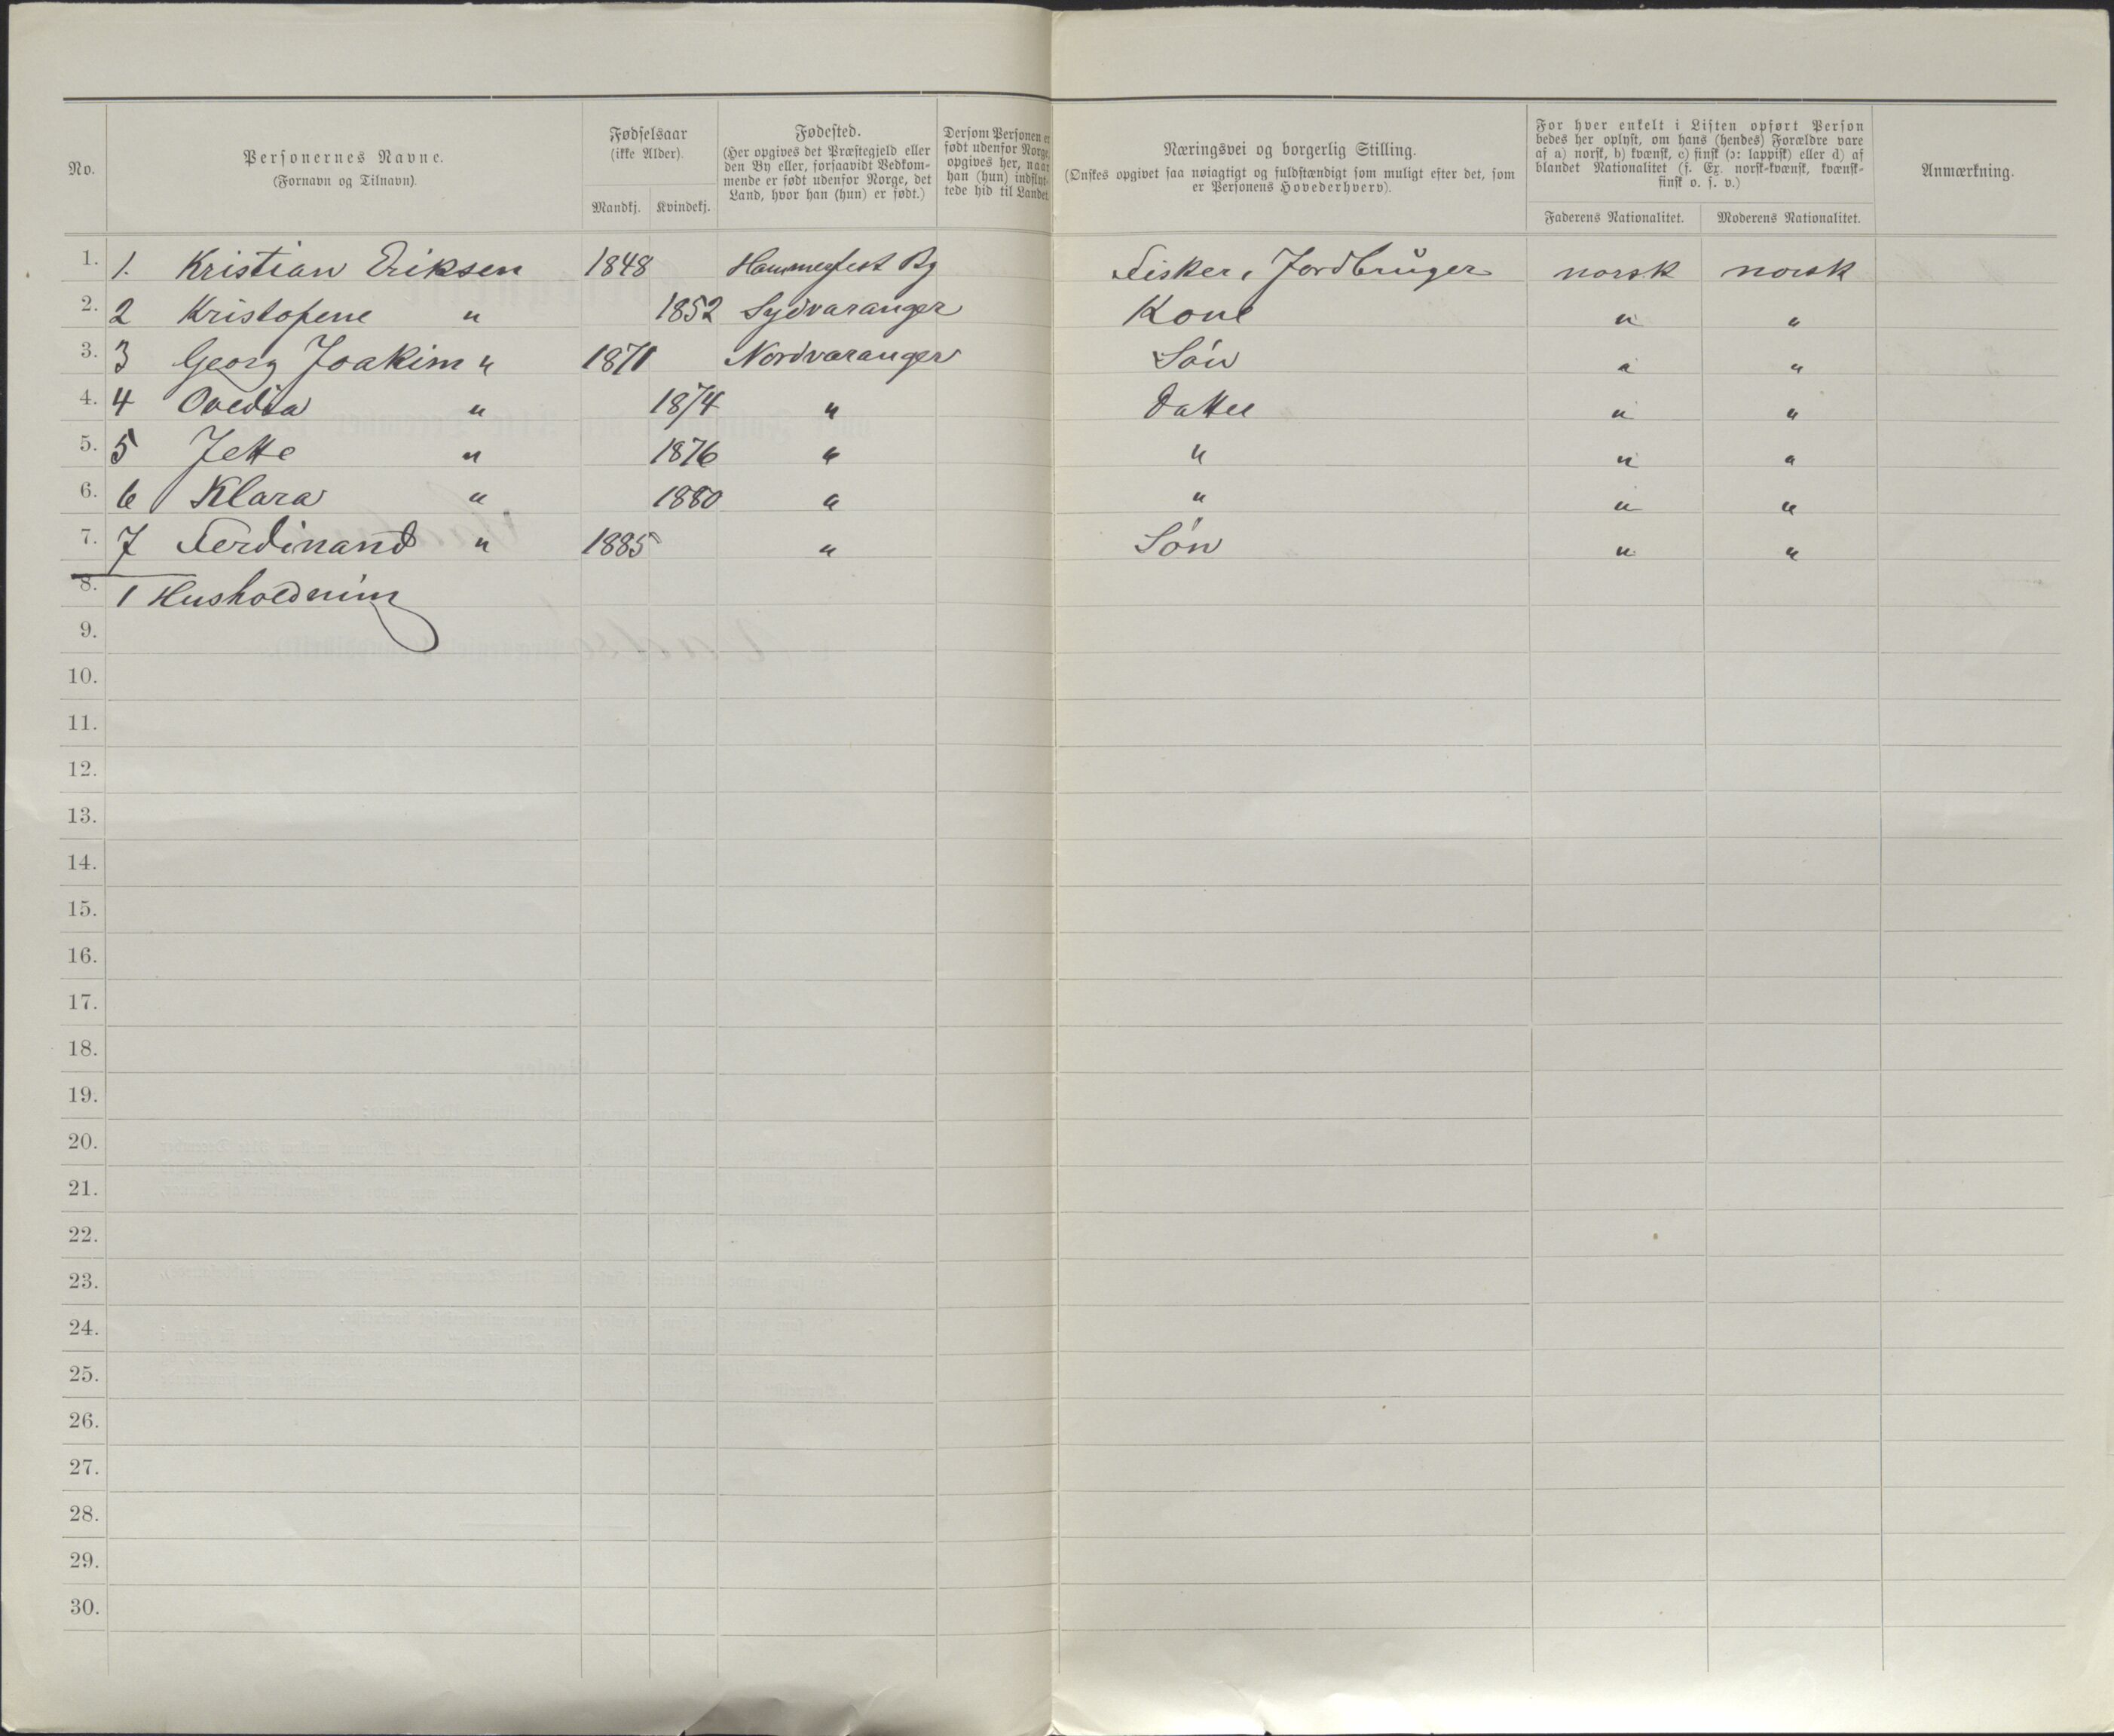 No.
Personernes Navne.
(Fornavn og Tilnavn).
Fødselsaar
(ikke Alder).
Mandkj. Kvindekj.
Fødested.
(Her opgives det Præstegjeld eller
den By eller, forsaavidt Vedkom-
mende er født udenfor Norge, det
Land, hvor han (hun) er født.)
Dersom Personen er
født udenfor Norge,
opgives her, naar
han (hun) indflyt-
tede hid til Landet.
Næringsvei og borgerlig Stilling.
(Ønskes opgivet saa nøiagtigt og fuldstændigt som muligt efter det, som
er Personens Hovederhverv).
For hver enkelt i Listen opført Person
bedes her oplyst, om hans (hendes) Forældre vare
af a) norsk, b) kvænsk, c) finsk (ɔ: lappisk) eller d) af
blandet Nationalitet (f. Ex. norsk-kvænsk, kvænsk-
finsk o. s. v.)
Faderens Nationalitet. Moderens Nationalitet.
Anmærkning.
1. 1. Kristian Eriksen 1848 Hammerfest By Fisker, Jordbruger norsk norsk
2. 2 Kristofene " 1852 Sydvaranger Kone " "
3. 3 Georg Joakim " 1871 Nordvaranger Søn " "
4. 4 Ovedia " 1874 " Datter " "
5. 5 Jette " 1876 " " " "
6. 6 Klara " 1880 " " " "
7. 7 Ferdinand " 1885 " Søn " "
8. 1 Husholdning
9.
10.
11.
12.
13.
14.
15.
16.
17.
18.
19.
20.
21.
22.
23.
24.
25.
26.
27.
28.
29.
30.